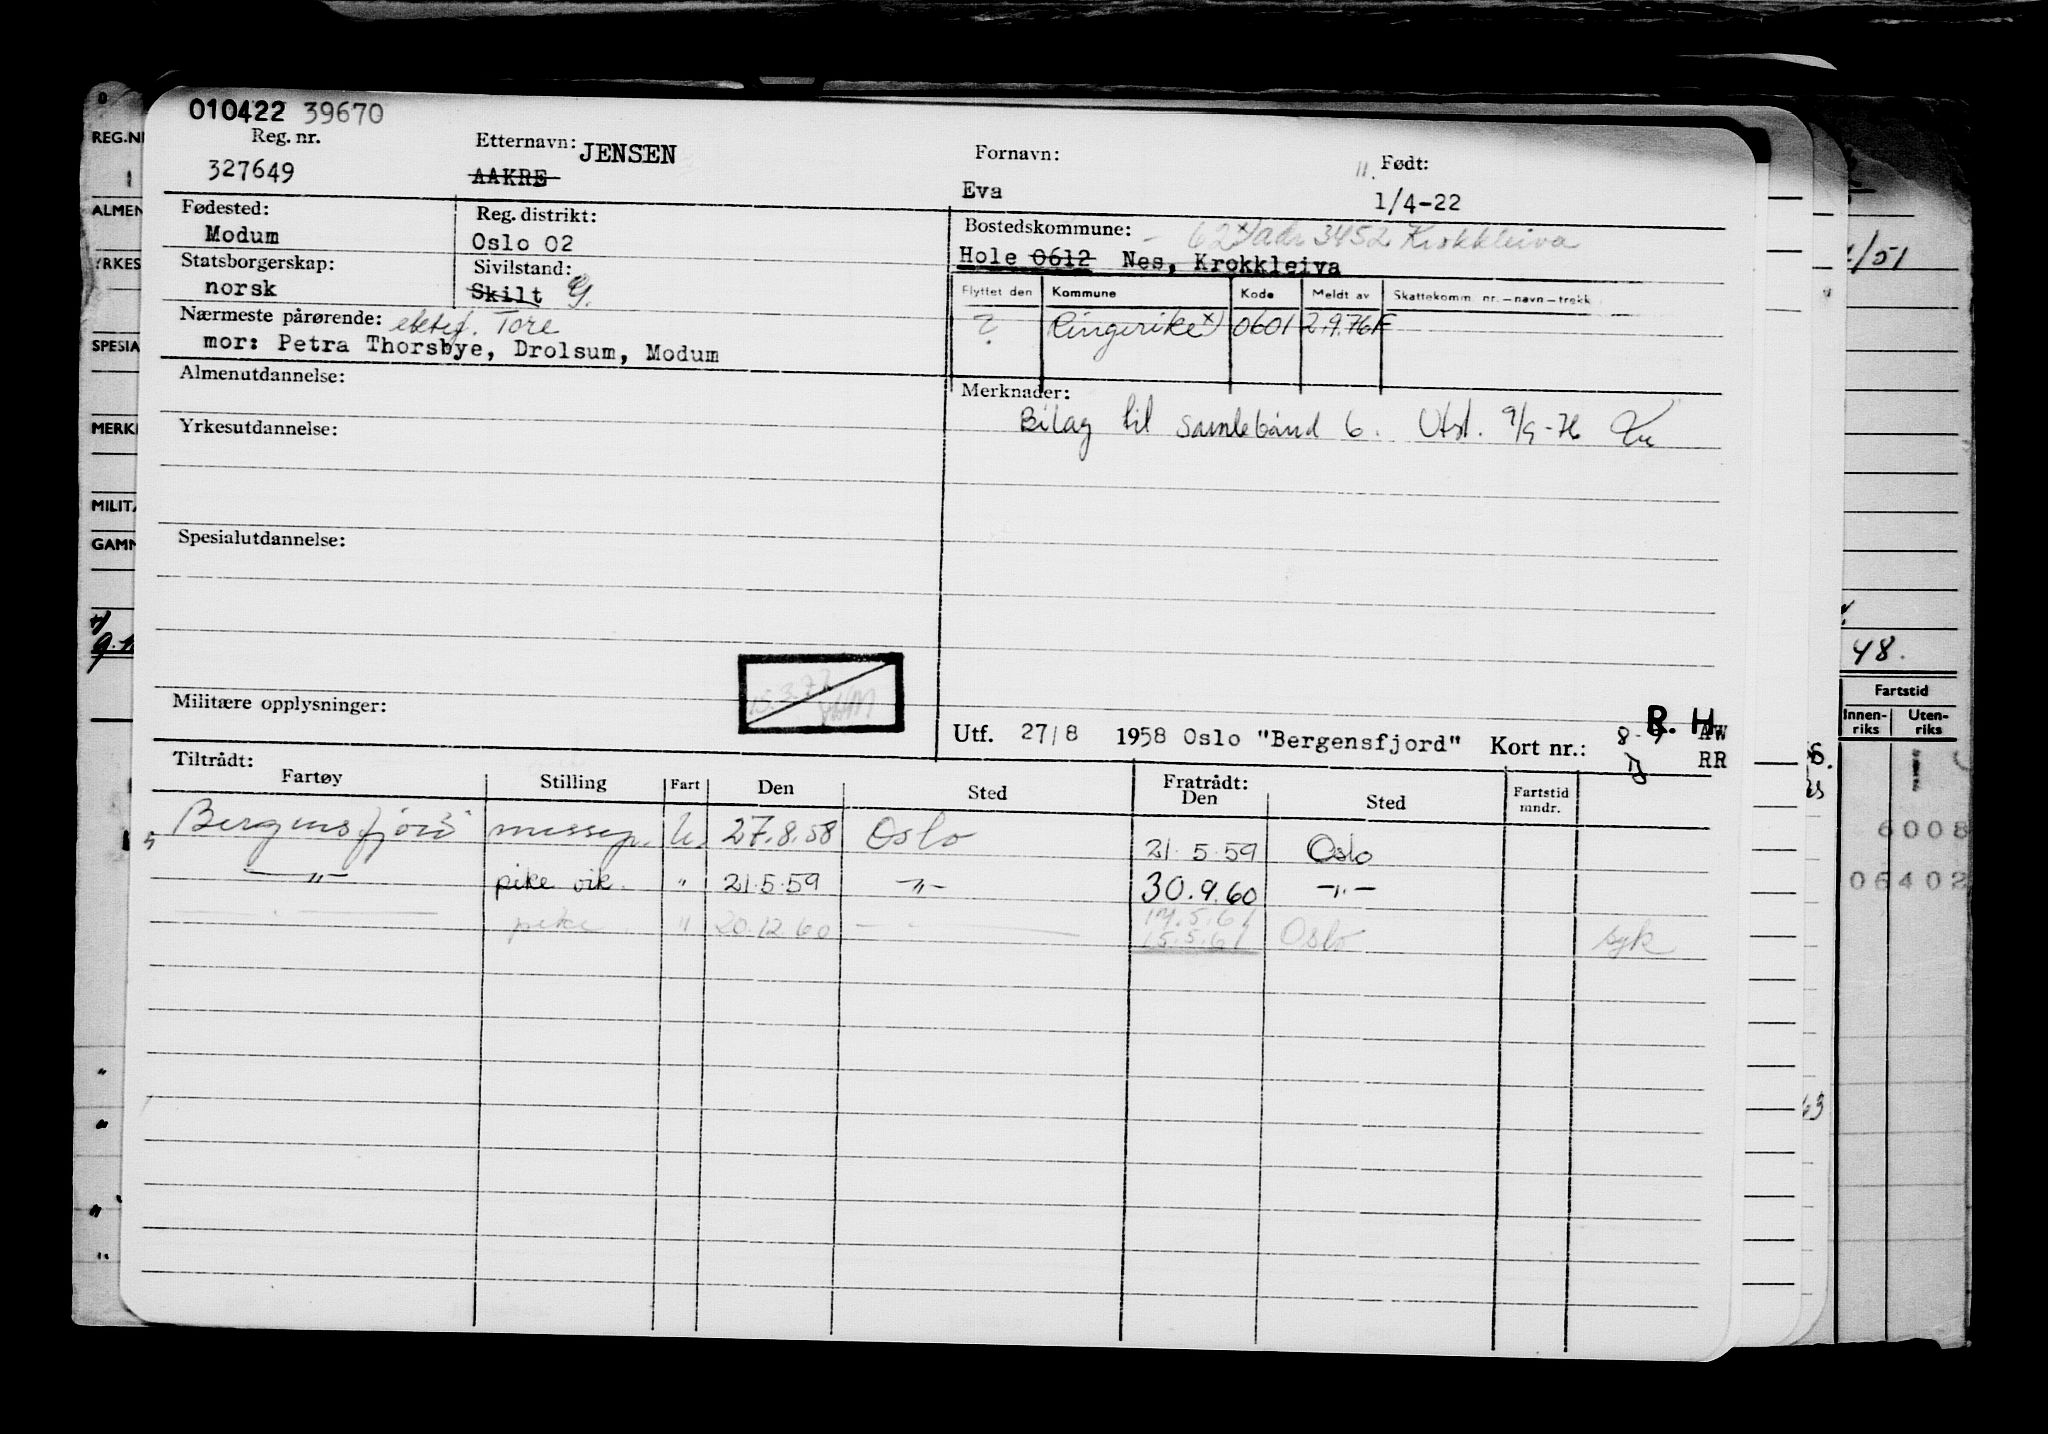 010422 39670
Reg. nr.
327649
Etternavn: JENSEN
AAKRE
Fornavn:
Eva
Født:
1/4-22
Fødested:
Modum
Reg. distrikt:
Oslo 02
Bostedskommune:
adr 3452 Krokkleiva
Hole 0612 Nes, Krokkleiva
Statsborgerskap:
norsk
Sivilstand:
Skilt G.
Flyttet den Kommune Kode Meldt av Skattekomm. nr.—navn—trekk
? Ringerike x) 0601 2.9.76 F
Nærmeste pårørende: ektef. Tore
mor: Petra Thorsbye, Drolsum, Modum
Almenutdannelse:
Merknader:
Bilag til samlebånd 6. Utst. 9/9-76
Yrkesutdannelse:
Spesialutdannelse:
Militære opplysninger:
R. H.
Utf. 27/8 1958 Oslo "Bergensfjord" Kort nr.: AW
RR
Tiltrådt:
Fartøy Stilling Fart Den Sted
Fratrådt:
Den Sted Fartstid mndr.
Bergensfjord messep. U. 27.8.58 Oslo 21.5.59 Oslo
—„— pike vik. " 21.5.59 —„— 30.9.60 —„—
pike " 20.12.60 17.5.61
15.5.61 Oslo syk
REG.N
ALMEN
YRKES
SPESIA
MERK
MILIT
GAMM
/51
48.
Fartstid
Innen-riks Uten-riks
6008
06402